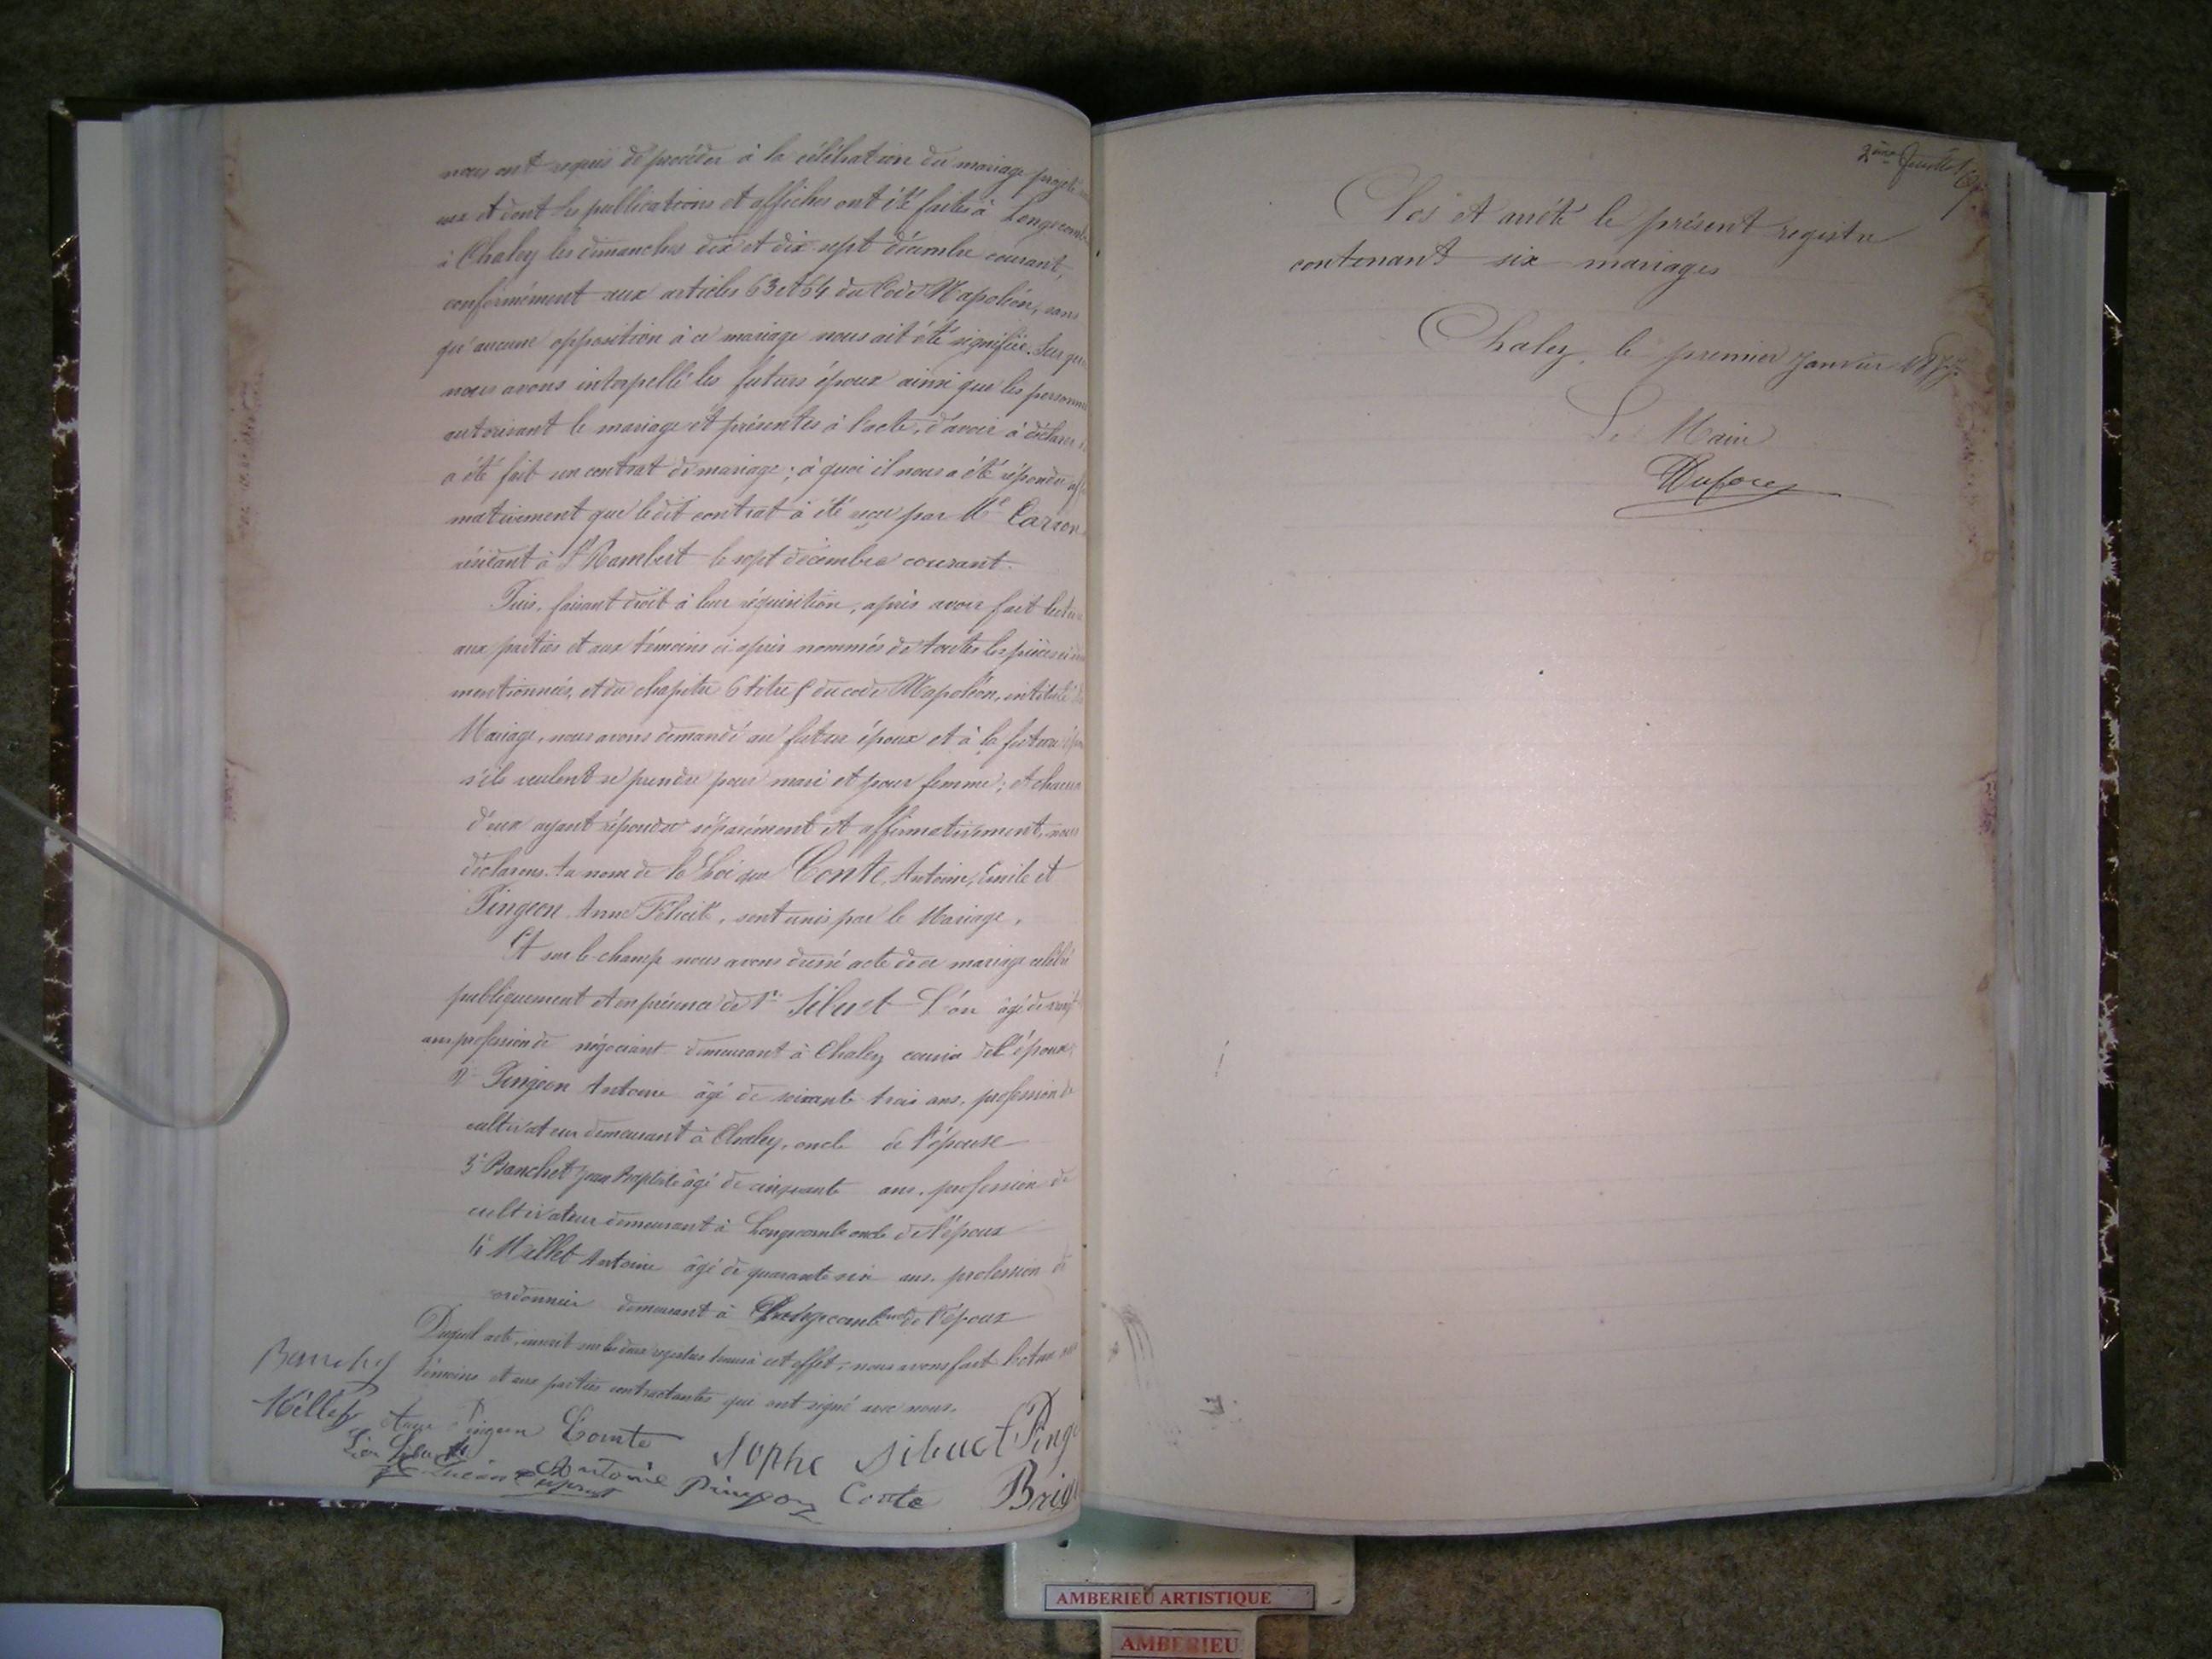 nous ont requis de procéder à la célébration du mariage projeté
eux et dont les publications et affiches ont été faites à Longecombe
à Chaley les dimanches dix et dix sept décembre courant,
conformément aux articles 63 et 64 du Code Napoléon, sans
qu'aucune opposition à ce mariage nous ait été signifiée. Sur quoi
nous avons interpellé les futurs époux ainsi que les personnes
autorisant le mariage et présentes à l'acte, d'avoir à déclarer
a été fait un contrat de mariage ; à quoi il nous a été répondu affir
mativement que ledit contrat à été reçu par Me Carron
résidant à St Rambert le sept décembre courant.
Puis, faisant droit à leur réquisition, après avoir fait lecture
aux parties et aux témoins ci après nommés de toutes les pièces ci
mentionnées, et du chapitre 6 titre 5 du code Napoléon, intitulé du
Mariage, nous avons demandé au futur époux et à la future
s'ils veulent se prendre pour mari et pour femme ; et chacun
d'eux ayant répondu séparément et affirmativement, nous
déclarons au nom de la Loi que Conte, Antoine, Emile et
Pingeon, Anne Félicité, sont unis par le Mariage.
Et sur-le-champ nous avons dressé acte de ce mariage célébré
publiquement et en présence de 1° Sibuet Léon âgé de
ans profession de négociant demeurant à Chaley cousin de l'épouse
2° Pingeon Antoine âgé de soixante trois ans, profession de
cultivateur demeurant à Chaley, oncle de l'épouse
3° Banchet Jean Baptiste âgé de cinquante ans, profession de
cultivateur demeurant à Longecombe oncle de l'époux
4° Millet Antoine âgé de quarante six ans, profession de
cordonnier demeurant à Longecombe de l'époux
Duquel acte, inscrit sur les deux registres tenus à cet effet, nous avons fait lecture aux
témoins et aux parties contractantes qui ont signé avec nous.
Banchet
Millet Anne Pingeon Comte Sophe Sibuet Ping
Léon Sibuet
Antoine Pingeon Conte Brig
2ème feuillet
Clos et arrêté le présent registre
contenant six mariages
Chaley, le premier Janvier 1877.
Le Maire
Dufour
AMBERIEU ARTISTIQUE
AMBERIEU